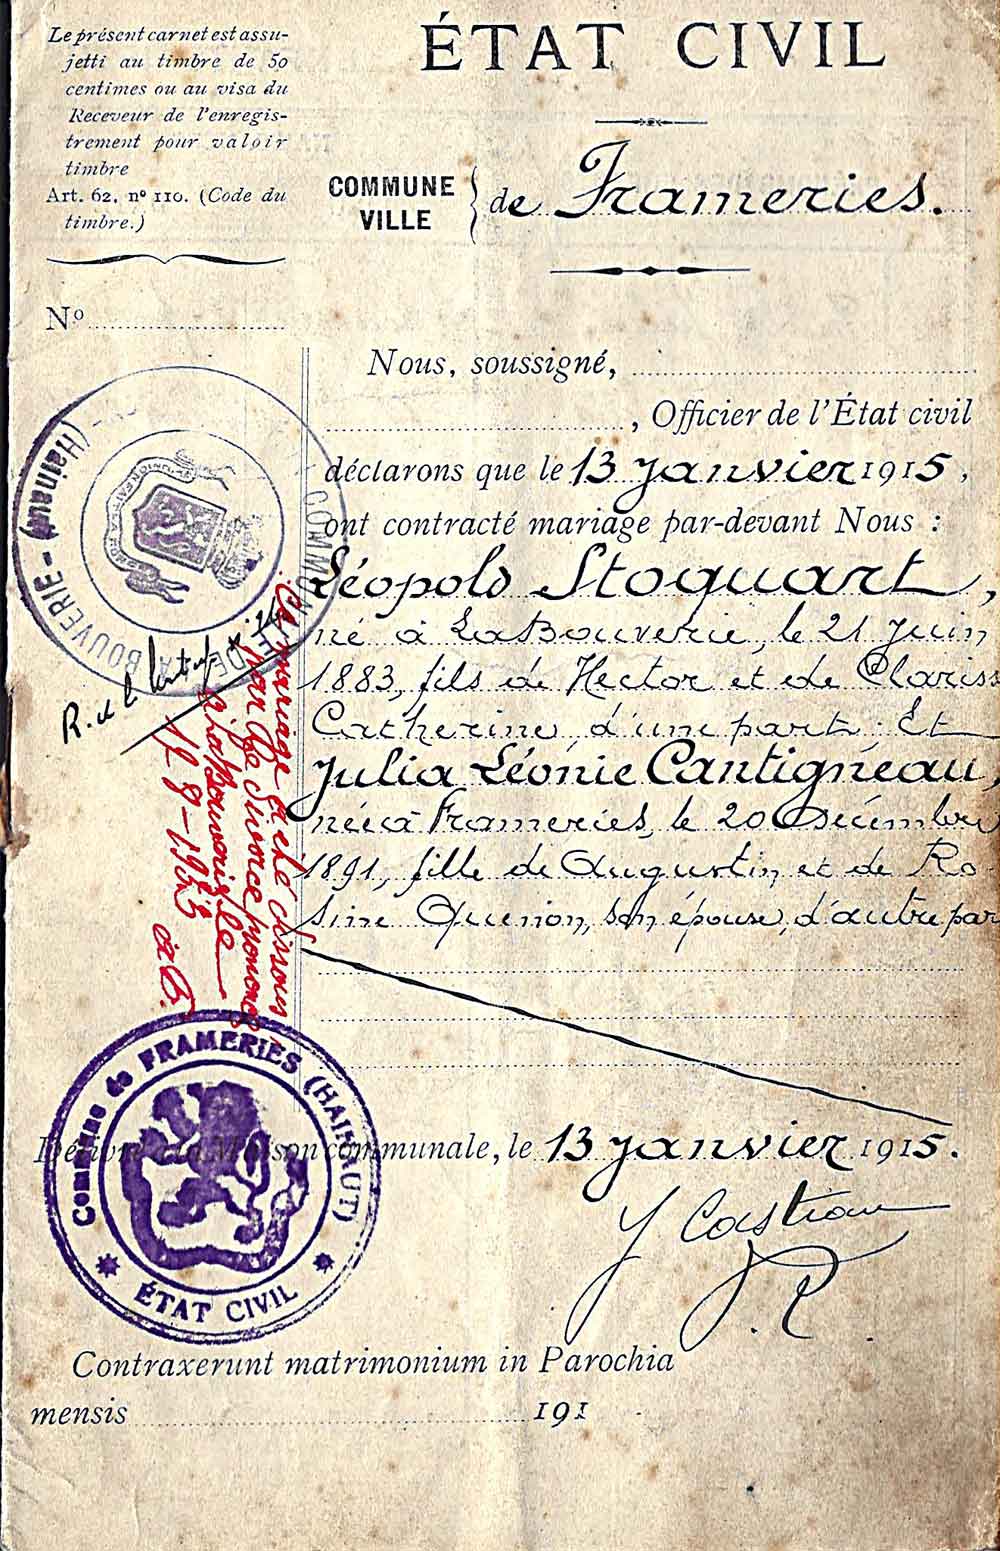 Le présent carnet est assu-
jetti au timbre de 50
centimes ou au visa du
Receveur de l'enregis-
trement pour valoir
timbre
Art. 62, nº 110. (Code du
timbre.)
Nº
ÉTAT CIVIL
COMMUNE
VILLE
de Frameries.
Nous, soussigné,
, Officier de l'État civil
déclarons que le 13 janvier 1915,
ont contracté mariage par-devant Nous :
Léopold Stoquart,
né à LaBouverie, le 21 Juin
1883, fils de Hector et de Clariss
Catherine, d'une part; Et
Julia Léonie Cantigneau,
née à Frameries, le 20 Décembre
1891, fille de Augustin et de Ro-
sine Quenon, son épouse, d'autre par
COMMUNE DE LA BOUVERIE - (Hainaut)
Ce mariage a été dissous
par le divorce prononcé
à La Bouverie le
Délivré à la Maison communale, le 13 janvier 1915.
J Castiau
Commune de FRAMERIES (HAINAUT)
ÉTAT CIVIL
Contraxerunt matrimonium in Parochia
mensis 191